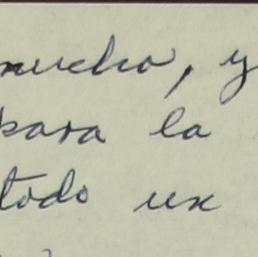 mucho, y
para la
todo un